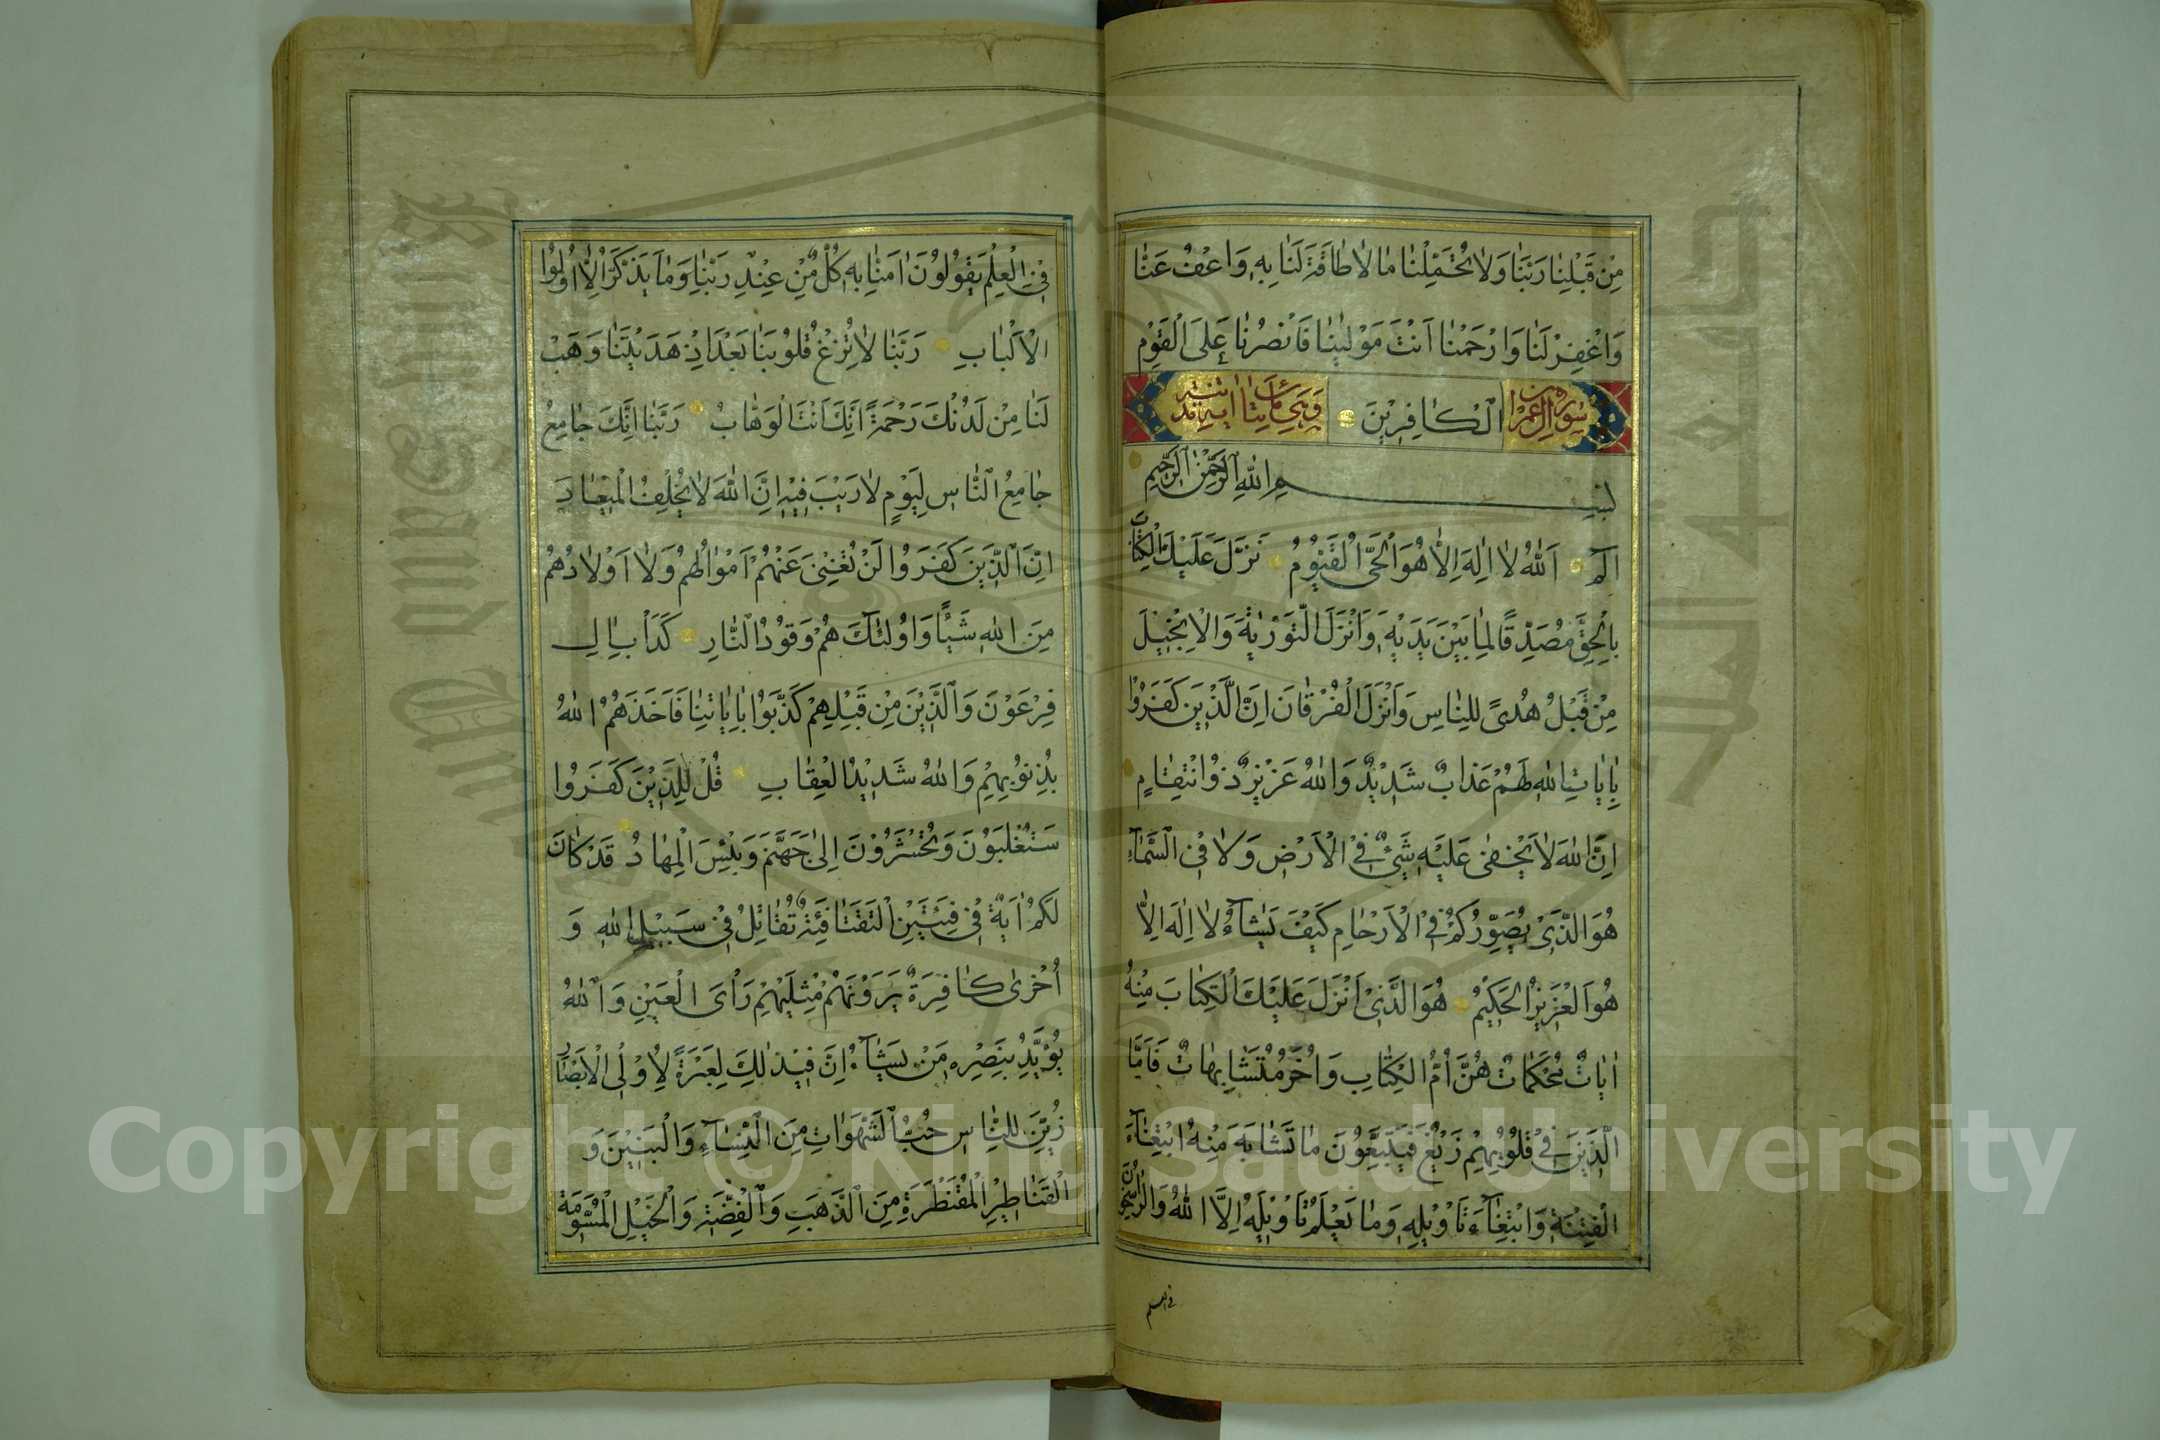 مِنْ قَبْلِنَا رَبَّنَا وَلَا تُحَمِّلْنَا مَا لَا طَاقَةَ لَنَا بِهِ وَاعْفُ عَنَّا
وَاغْفِرْ لَنَا وَارْحَمْنَا اَنْتَ مَوْلٰينَا فَانْصُرْنَا عَلَى الْقَوْمِ
سورة آل عمران الْكَافِرِينَ وهي مائتا آية
بِسْمِ اللهِ الرَّحْمٰنِ الرَّحِيمِ
الٓمٓ اَللهُ لَا اِلٰهَ اِلَّا هُوَ الْحَيُّ الْقَيُّومُ نَزَّلَ عَلَيْكَ الْكِتَابَ
بِالْحَقِّ مُصَدِّقًا لِمَا بَيْنَ يَدَيْهِ وَاَنْزَلَ التَّوْرٰيةَ وَالْاِنْجِيلَ
مِنْ قَبْلُ هُدًى لِلنَّاسِ وَاَنْزَلَ الْفُرْقَانَ اِنَّ الَّذِينَ كَفَرُوا
بِاٰيَاتِ اللهِ لَهُمْ عَذَابٌ شَدِيدٌ وَاللهُ عَزِيزٌ ذُو انْتِقَامٍ
اِنَّ اللهَ لَا يَخْفٰى عَلَيْهِ شَيْءٌ فِي الْاَرْضِ وَلَا فِي السَّمَآءِ
هُوَ الَّذِي يُصَوِّرُكُمْ فِي الْاَرْحَامِ كَيْفَ يَشَآءُ لَا اِلٰهَ اِلَّا
هُوَ الْعَزِيزُ الْحَكِيمُ هُوَ الَّذِي اَنْزَلَ عَلَيْكَ الْكِتَابَ مِنْهُ
اٰيَاتٌ مُحْكَمَاتٌ هُنَّ اُمُّ الْكِتَابِ وَاُخَرُ مُتَشَابِهَاتٌ فَاَمَّا
الَّذِينَ فِي قُلُوبِهِمْ زَيْغٌ فَيَتَّبِعُونَ مَا تَشَابَهَ مِنْهُ ابْتِغَآءَ
الْفِتْنَةِ وَابْتِغَآءَ تَاْوِيلِهِ وَمَا يَعْلَمُ تَاْوِيلَهُ اِلَّا اللهُ وَالرَّاسِخُونَ
في العلم
فِي الْعِلْمِ يَقُولُونَ اٰمَنَّا بِهِ كُلٌّ مِنْ عِنْدِ رَبِّنَا وَمَا يَذَّكَّرُ اِلَّا اُولُوا
الْاَلْبَابِ رَبَّنَا لَا تُزِغْ قُلُوبَنَا بَعْدَ اِذْ هَدَيْتَنَا وَهَبْ
لَنَا مِنْ لَدُنْكَ رَحْمَةً اِنَّكَ اَنْتَ الْوَهَّابُ رَبَّنَا اِنَّكَ جَامِعُ
جَامِعُ النَّاسِ لِيَوْمٍ لَا رَيْبَ فِيهِ اِنَّ اللهَ لَا يُخْلِفُ الْمِيعَادَ
اِنَّ الَّذِينَ كَفَرُوا لَنْ تُغْنِيَ عَنْهُمْ اَمْوَالُهُمْ وَلَا اَوْلَادُهُمْ
مِنَ اللهِ شَيْئًا وَاُولٰئِكَ هُمْ وَقُودُ النَّارِ كَدَاْبِ اٰلِ
فِرْعَوْنَ وَالَّذِينَ مِنْ قَبْلِهِمْ كَذَّبُوا بِاٰيَاتِنَا فَاَخَذَهُمُ اللهُ
بِذُنُوبِهِمْ وَاللهُ شَدِيدُ الْعِقَابِ قُلْ لِلَّذِينَ كَفَرُوا
سَتُغْلَبُونَ وَتُحْشَرُونَ اِلٰى جَهَنَّمَ وَبِئْسَ الْمِهَادُ قَدْ كَانَ
لَكُمْ اٰيَةٌ فِي فِئَتَيْنِ الْتَقَتَا فِئَةٌ تُقَاتِلُ فِي سَبِيلِ اللهِ وَ
اُخْرٰى كَافِرَةٌ يَرَوْنَهُمْ مِثْلَيْهِمْ رَاْيَ الْعَيْنِ وَاللهُ
يُؤَيِّدُ بِنَصْرِهِ مَنْ يَشَآءُ اِنَّ فِي ذٰلِكَ لَعِبْرَةً لِاُولِي الْاَبْصَارِ
زُيِّنَ لِلنَّاسِ حُبُّ الشَّهَوَاتِ مِنَ النِّسَآءِ وَالْبَنِينَ وَ
الْقَنَاطِيرِ الْمُقَنْطَرَةِ مِنَ الذَّهَبِ وَالْفِضَّةِ وَالْخَيْلِ الْمُسَوَّمَةِ
Copyright © King Saud University